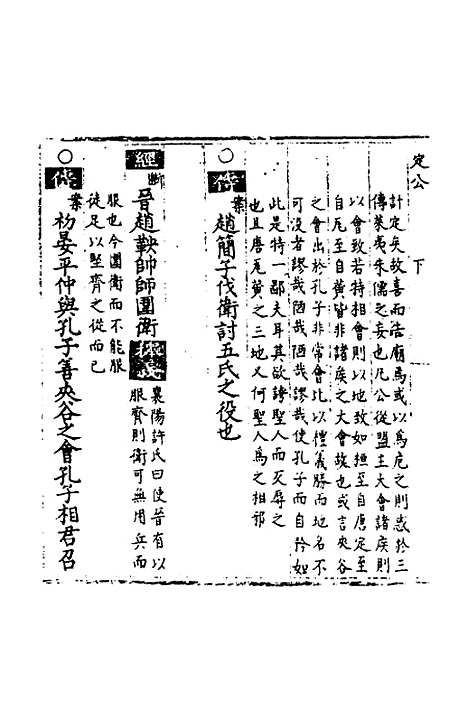 定公 下
計定矣故喜而告廟焉或以為危之則惑於三
傳萊夷朱儒之妄也凡公從盟主大會諸侯則
以會致若特相會則以地致如桓至自唐定至
自瓦至自黃皆非諸侯之大會故也或言夾谷
之會出於孔子非常會比以禮義勝而地名不
可没者謬哉陋哉謬哉使孔子而自矜如
此是特一鄙夫耳其欲謗聖人而灭辱之
也且唐瓦黃之三地又何聖人為之相邪
○傳案趙簡子伐衛討五氏之役也
經斷晉趙鞅帥師圍衛
襄陽許氏曰使晉有以
服齊則衛可無用兵而
服也今圍衛而不能服
徒足以堅齊之從而已
○傳案初晏平仲與孔子善夾谷之會孔子相君召